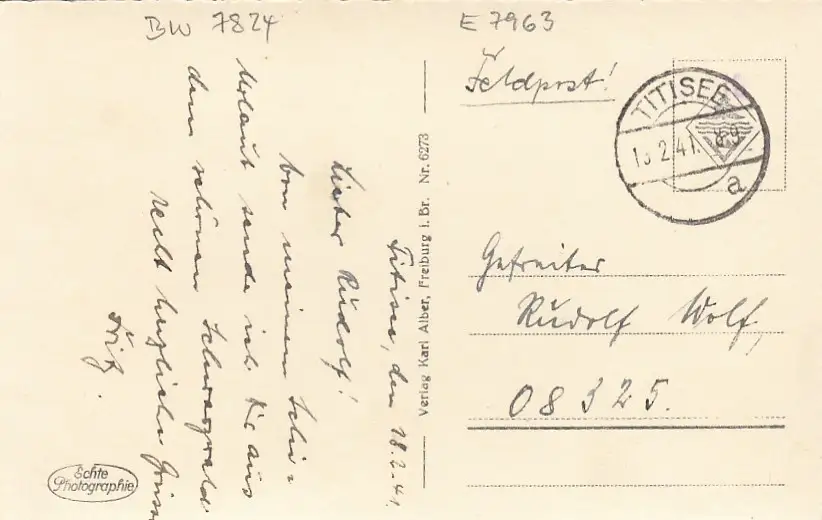 BW 7824
E 7963
Feldpost!
TITISEE
2.41. 8-9
a
Titisee, den 18.2.41.
Lieber Rudolf!
Von meinem Schi-
Urlaub sende ich Dir aus
dem schönen Schwarzwald
recht herzliche Grüsse
Fritz.
Verlag Karl Alber, Freiburg i. Br. Nr. 6273
Gefreiter
Rudolf Wolf,
08325.
Echte
Photographie